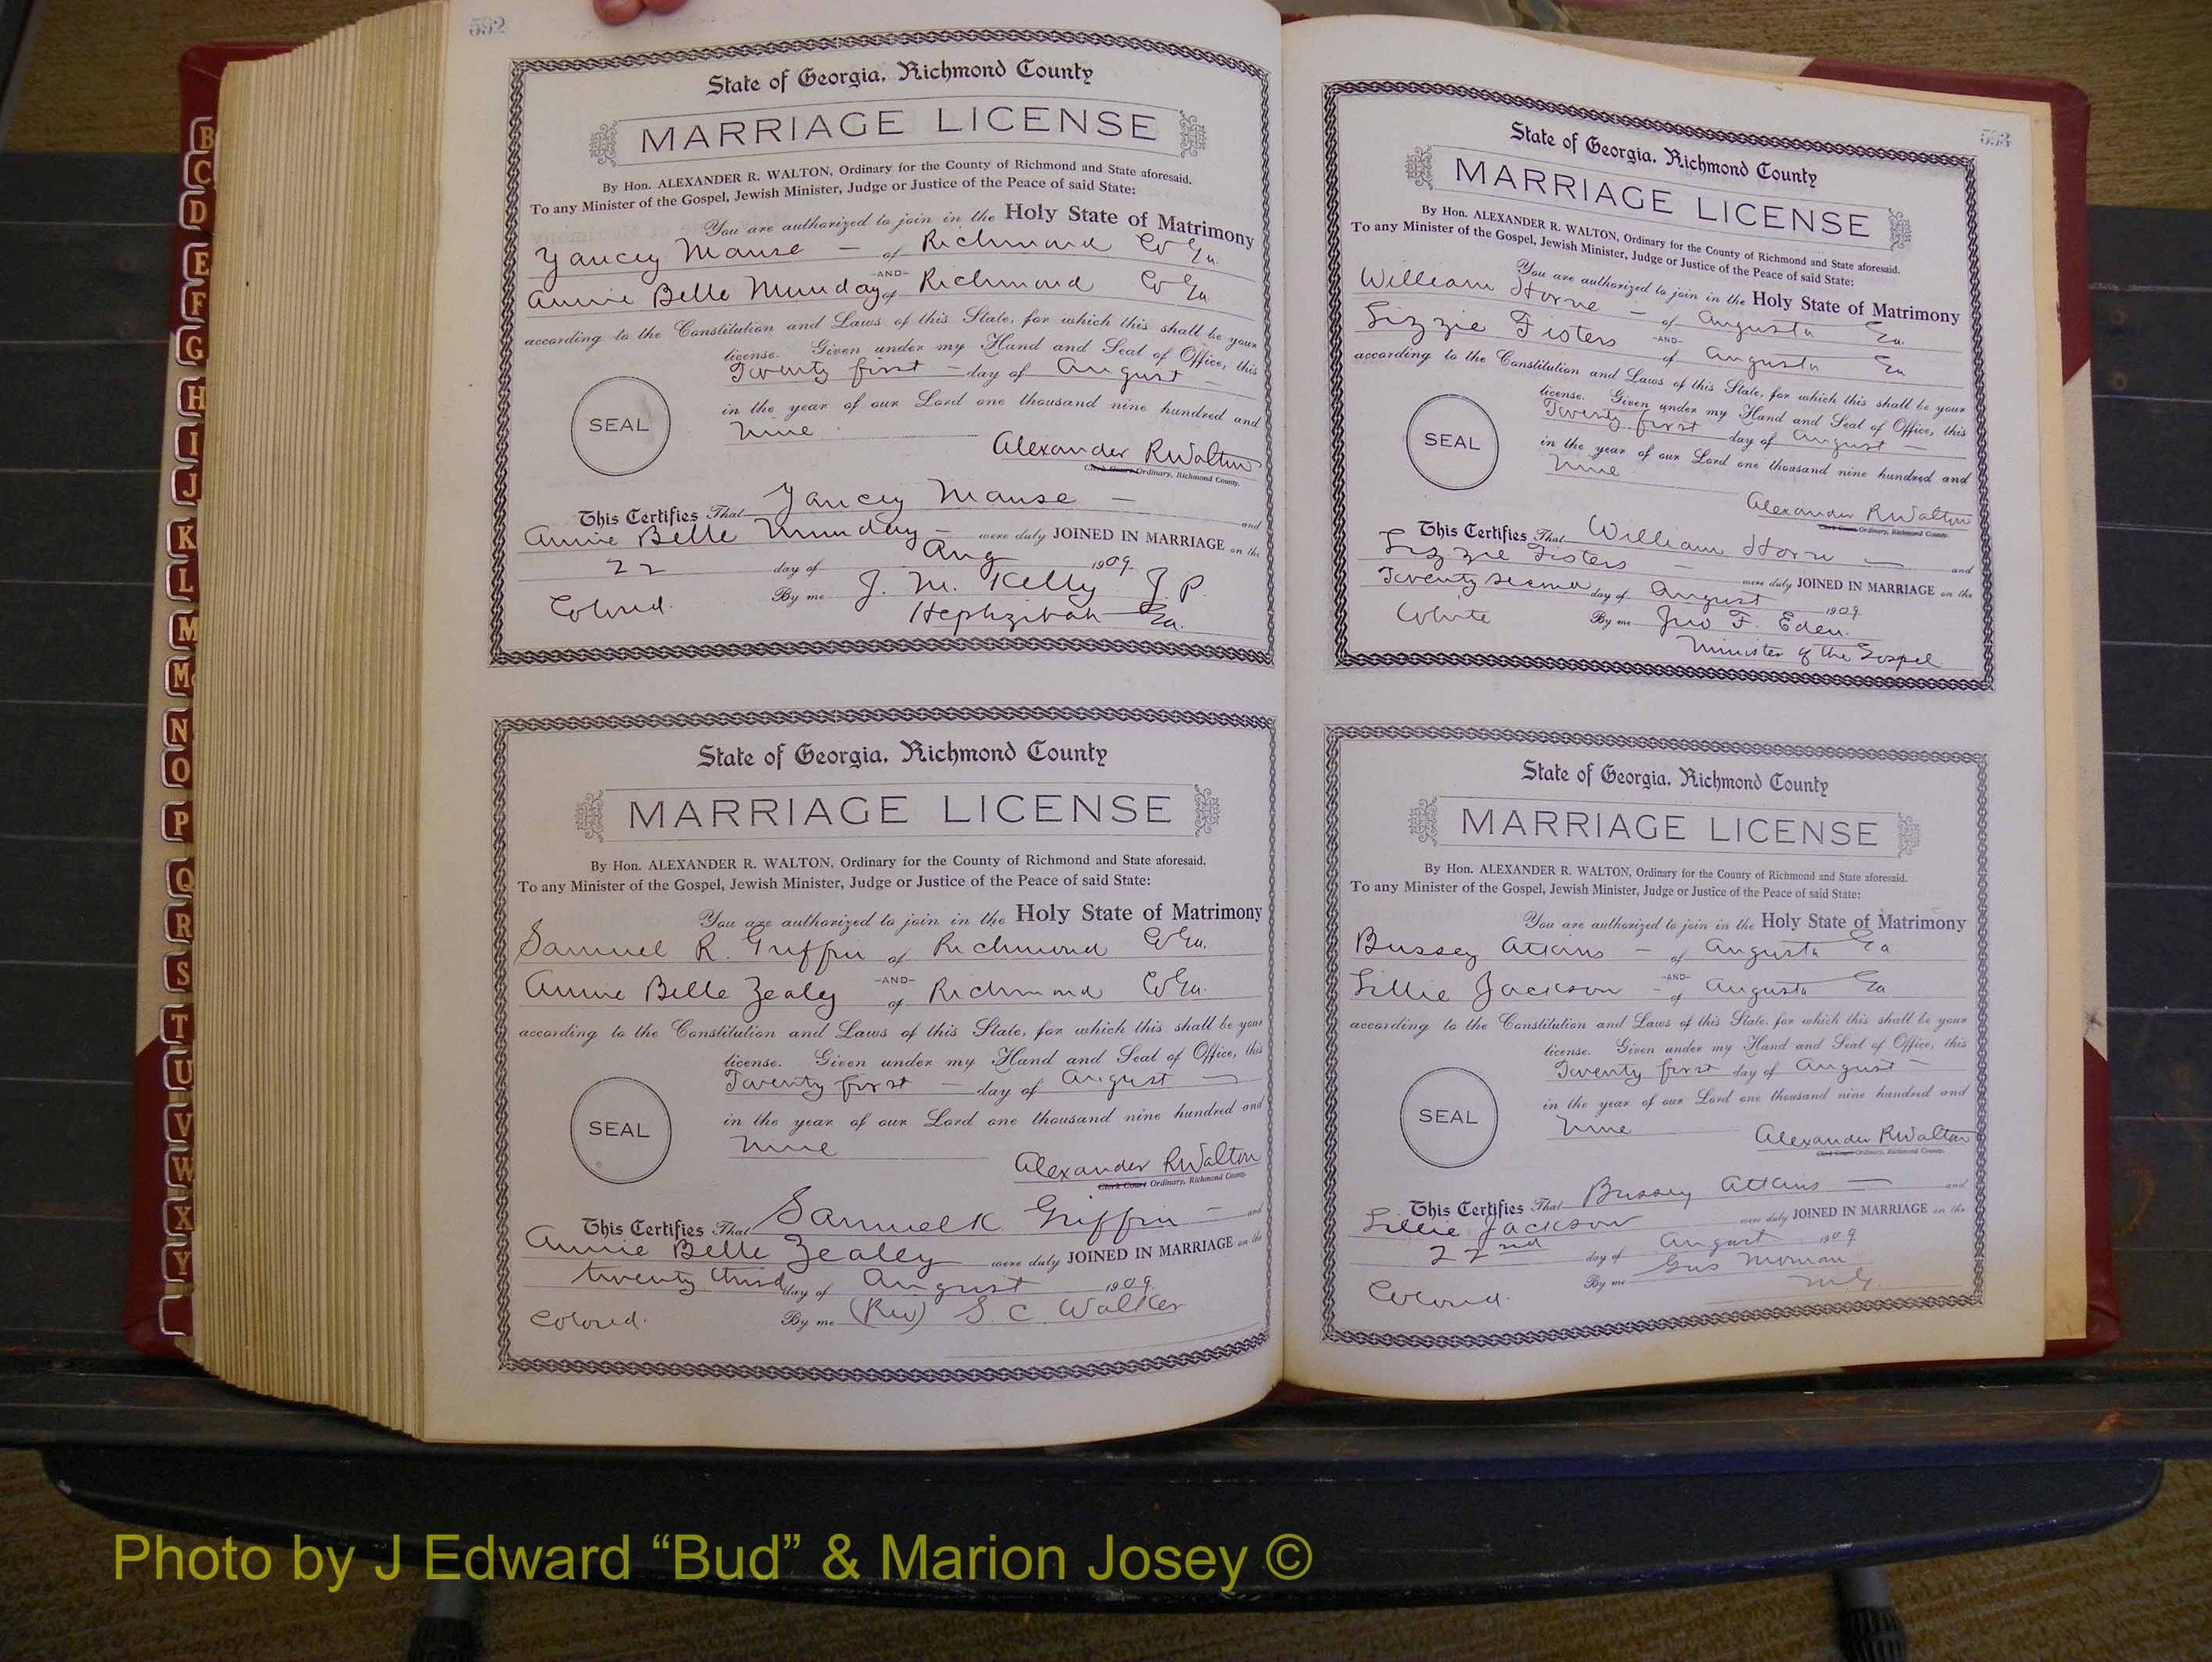 B
C
D
E
F
G
H
I
J
K
L
M
Mc
N
O
P
Q
R
S
T
U
V
W
X
Y
592
State of Georgia, Richmond County
MARRIAGE LICENSE
By Hon. ALEXANDER R. WALTON, Ordinary for the County of Richmond and State aforesaid.
To any Minister of the Gospel, Jewish Minister, Judge or Justice of the Peace of said State:
You are authorized to join in the Holy State of Matrimony
Yancey Manse - of Richmond Co Ga.
-AND-
Annie Belle Munday of Richmond Co Ga
according to the Constitution and Laws of this State, for which this shall be your
license. Given under my Hand and Seal of Office, this
Twenty first - day of August -
in the year of our Lord one thousand nine hundred and
SEAL
nine
Alexander R Walton
Clerk Court Ordinary, Richmond County.
This Certifies That Yancey Manse - and
Annie Belle Munday - were duly JOINED IN MARRIAGE on the
22 day of Aug 1909
Colored. By me J. M. Kelly J. P.
Hephzibah Ga.
State of Georgia, Richmond County
MARRIAGE LICENSE
By Hon. ALEXANDER R. WALTON, Ordinary for the County of Richmond and State aforesaid.
To any Minister of the Gospel, Jewish Minister, Judge or Justice of the Peace of said State:
You are authorized to join in the Holy State of Matrimony
Samuel R. Griffin of Richmond Co Ga.
-AND-
Annie Belle Zealy of Richmond Co Ga.
according to the Constitution and Laws of this State, for which this shall be your
license. Given under my Hand and Seal of Office, this
Twenty first - day of August
in the year of our Lord one thousand nine hundred and
SEAL
nine
Alexander R Walton
Clerk Court Ordinary, Richmond County.
This Certifies That Samuel K. Griffin - and
Annie Belle Zealey were duly JOINED IN MARRIAGE on the
twenty third day of August 1909
Colored. By me (Rev) S. C. Walker
593
State of Georgia, Richmond County
MARRIAGE LICENSE
By Hon. ALEXANDER R. WALTON, Ordinary for the County of Richmond and State aforesaid.
To any Minister of the Gospel, Jewish Minister, Judge or Justice of the Peace of said State:
You are authorized to join in the Holy State of Matrimony
William Horne - of Augusta Ga.
-AND-
Lizzie Fisters of Augusta Ga
according to the Constitution and Laws of this State, for which this shall be your
license. Given under my Hand and Seal of Office, this
Twenty first day of August
in the year of our Lord one thousand nine hundred and
SEAL
nine
Alexander R Walton
Clerk Court Ordinary, Richmond County.
This Certifies That William Horn - and
Lizzie Fisters - were duly JOINED IN MARRIAGE on the
Twenty second day of August 1909
White By me Jno F. Eden.
Minister of the Gospel
State of Georgia, Richmond County
MARRIAGE LICENSE
By Hon. ALEXANDER R. WALTON, Ordinary for the County of Richmond and State aforesaid.
To any Minister of the Gospel, Jewish Minister, Judge or Justice of the Peace of said State:
You are authorized to join in the Holy State of Matrimony
Bussey Atkins - of Augusta Ga
-AND-
Lillie Jackson - of Augusta Ga
according to the Constitution and Laws of this State, for which this shall be your
license. Given under my Hand and Seal of Office, this
Twenty first day of August -
in the year of our Lord one thousand nine hundred and
SEAL
nine
Alexander R Walton
Clerk Court Ordinary, Richmond County.
This Certifies That Bussey Atkins - and
Lillie Jackson were duly JOINED IN MARRIAGE on the
22nd day of August 1909
Colored. By me Gus Moman
M.G.
Photo by J Edward “Bud” & Marion Josey ©